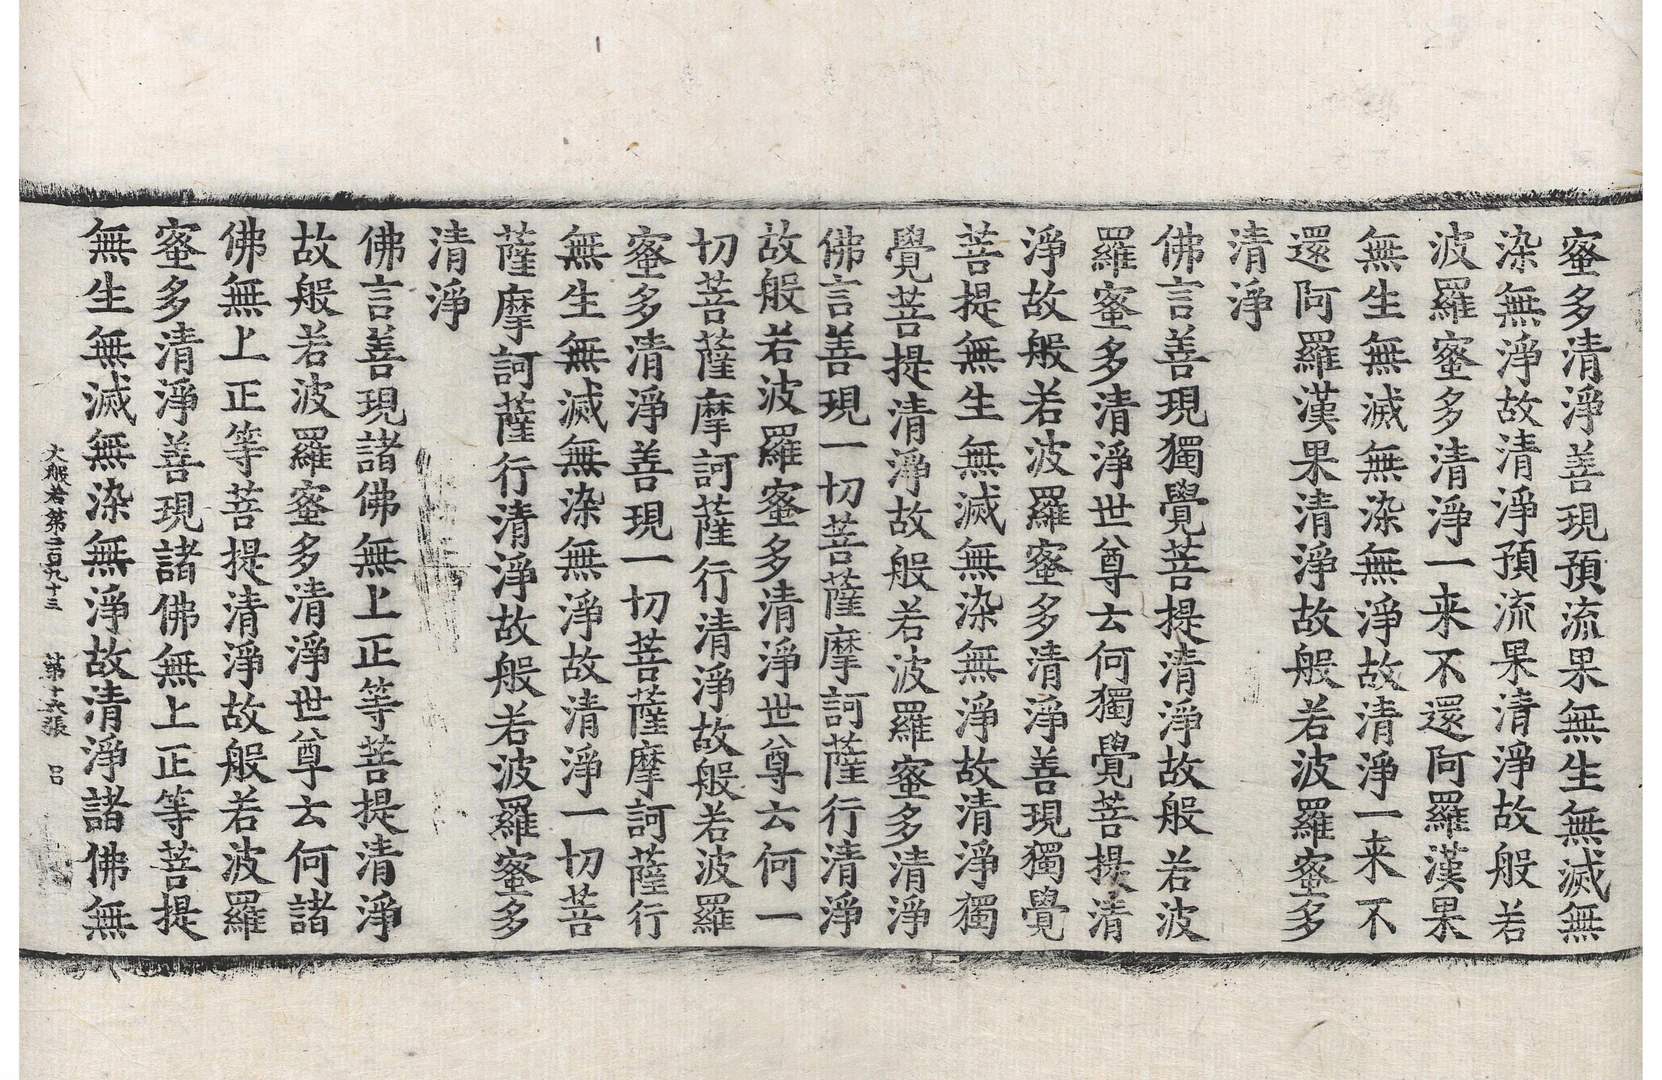 蜜多清淨善現預流果無生無滅無
染無淨故清淨預流果清淨故般若
波羅蜜多清淨一来不還阿羅漢果
無生無滅無染無淨故清淨一来不
還阿羅漢果清淨故般若波羅蜜多
清淨
佛言善現獨覺菩提清淨故般若波
羅蜜多清淨世尊云何獨覺菩提清
淨故般若波羅蜜多清淨善現獨覺
菩提無生無滅無染無淨故清淨獨
覺菩提清淨故般若波羅蜜多清淨
佛言善現一切菩薩摩訶薩行清淨
故般若波羅蜜多清淨世尊云何一
切菩薩摩訶薩行清淨故般若波羅
蜜多清淨善現一切菩薩摩訶薩行
無生無滅無染無淨故清淨一切菩
薩摩訶薩行清淨故般若波羅蜜多
清淨
佛言善現諸佛無上正等菩提清淨
故般若波羅蜜多清淨世尊云何諸
佛無上正等菩提清淨故般若波羅
蜜多清淨善現諸佛無上正等菩提
無生無滅無染無淨故清淨諸佛無
大般若第二百九十三 第十六張 呂